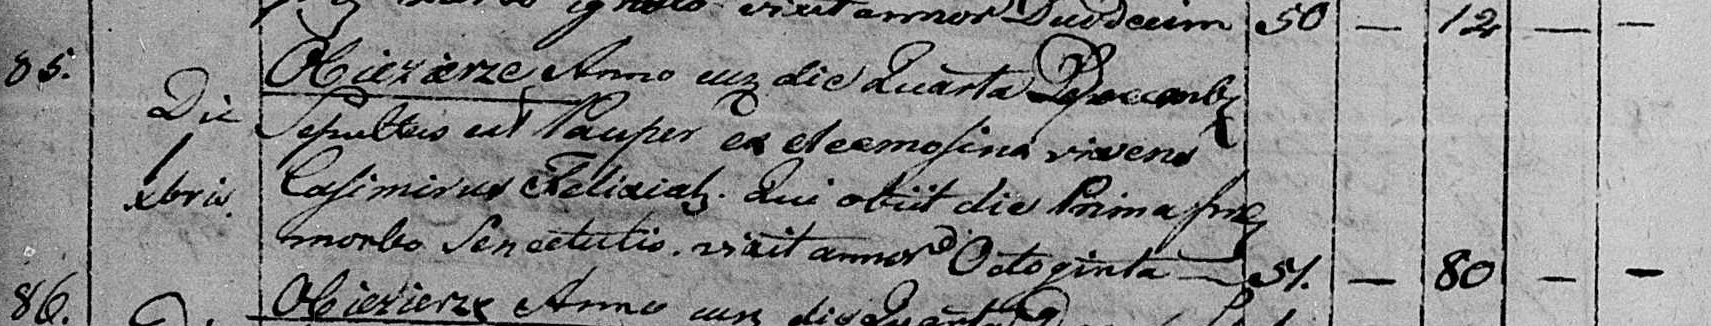 ignoto vixit annos Duodecim 50 — 12 — —
85. Obiezierze Anno uts die Quarta Decembr
Die Sepultus est Pauper ex eleemosina vivens
1 xbris. Casimirus Feliciak. Qui obiit die Prima hujus
morbo Senectutis. vixit annos Octoginta — 51. — 80 — —
86. Obiezierze Anno uts die Quarta